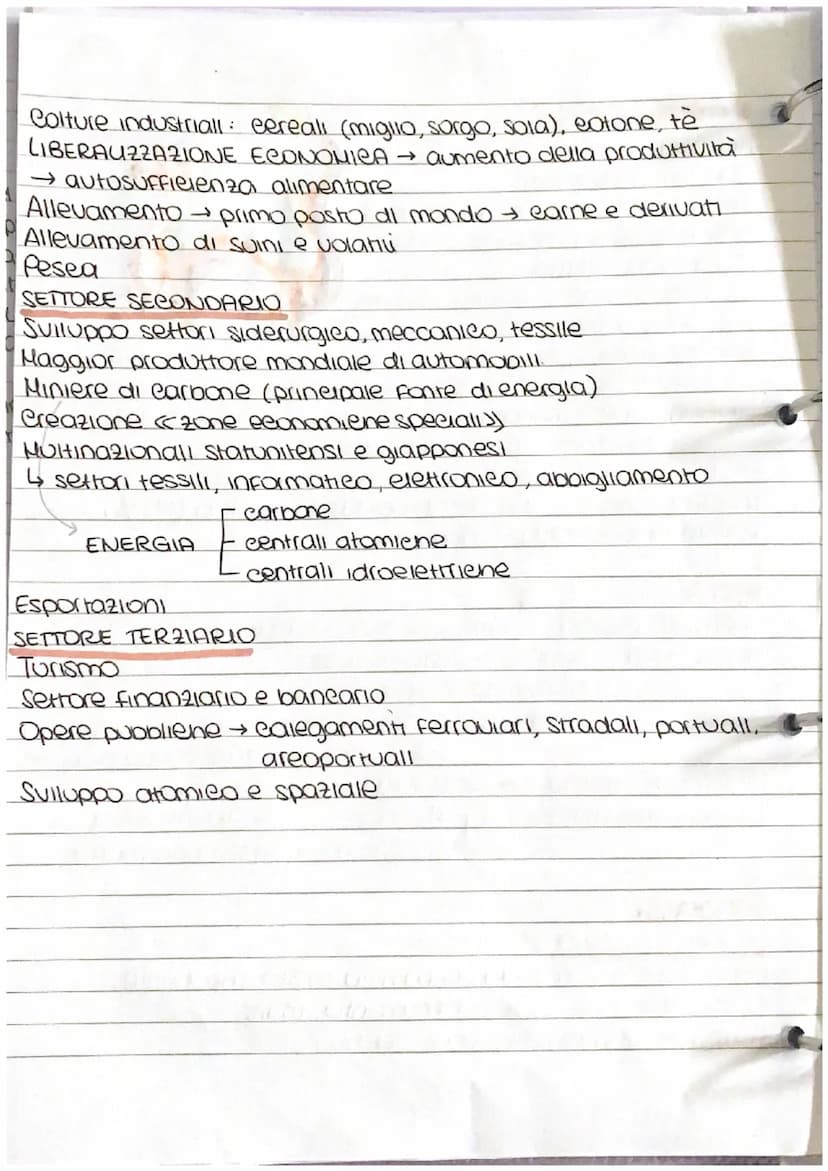 Colture industriali: cereali (miglio, sorgo, soia), cotone, tè
LIBERALIZZAZIONE ECONOMICA → aumento della produttività
→ autosufficienza alimentare
Allevamento → primo posto al mondo → carne e derivati
Allevamento di suini e volatili
Pesca
SETTORE SECONDARIO
Sviluppo settori siderurgico, meccanico, tessile
Maggior produttore mondiale di automobili
Miniere di carbone (principale fonte di energia)
Creazione «zone economiche speciali»
Multinazionali statunitensi e giapponesi
↳ settori tessili, informatico, elettronico, abbigliamento
carbone
ENERGIA centrali atomiche
centrali idroelettriche
Esportazioni
SETTORE TERZIARIO
Turismo
Settore finanziario e bancario
Opere pubbliche → calegamenti ferroviari, stradali, portuali,
areoportuali
Sviluppo atomico e spaziale